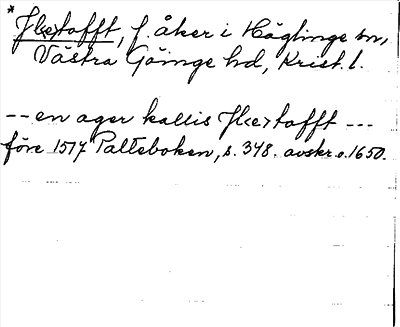 *
Jl(e)tofft, f. åker i Häglinge sn,
Västra Göinge hd, Krist. l.
-- en ager kallis Jl(e)tofft ---
före 1517 Palteboken, s. 348. avskr. o. 1650.